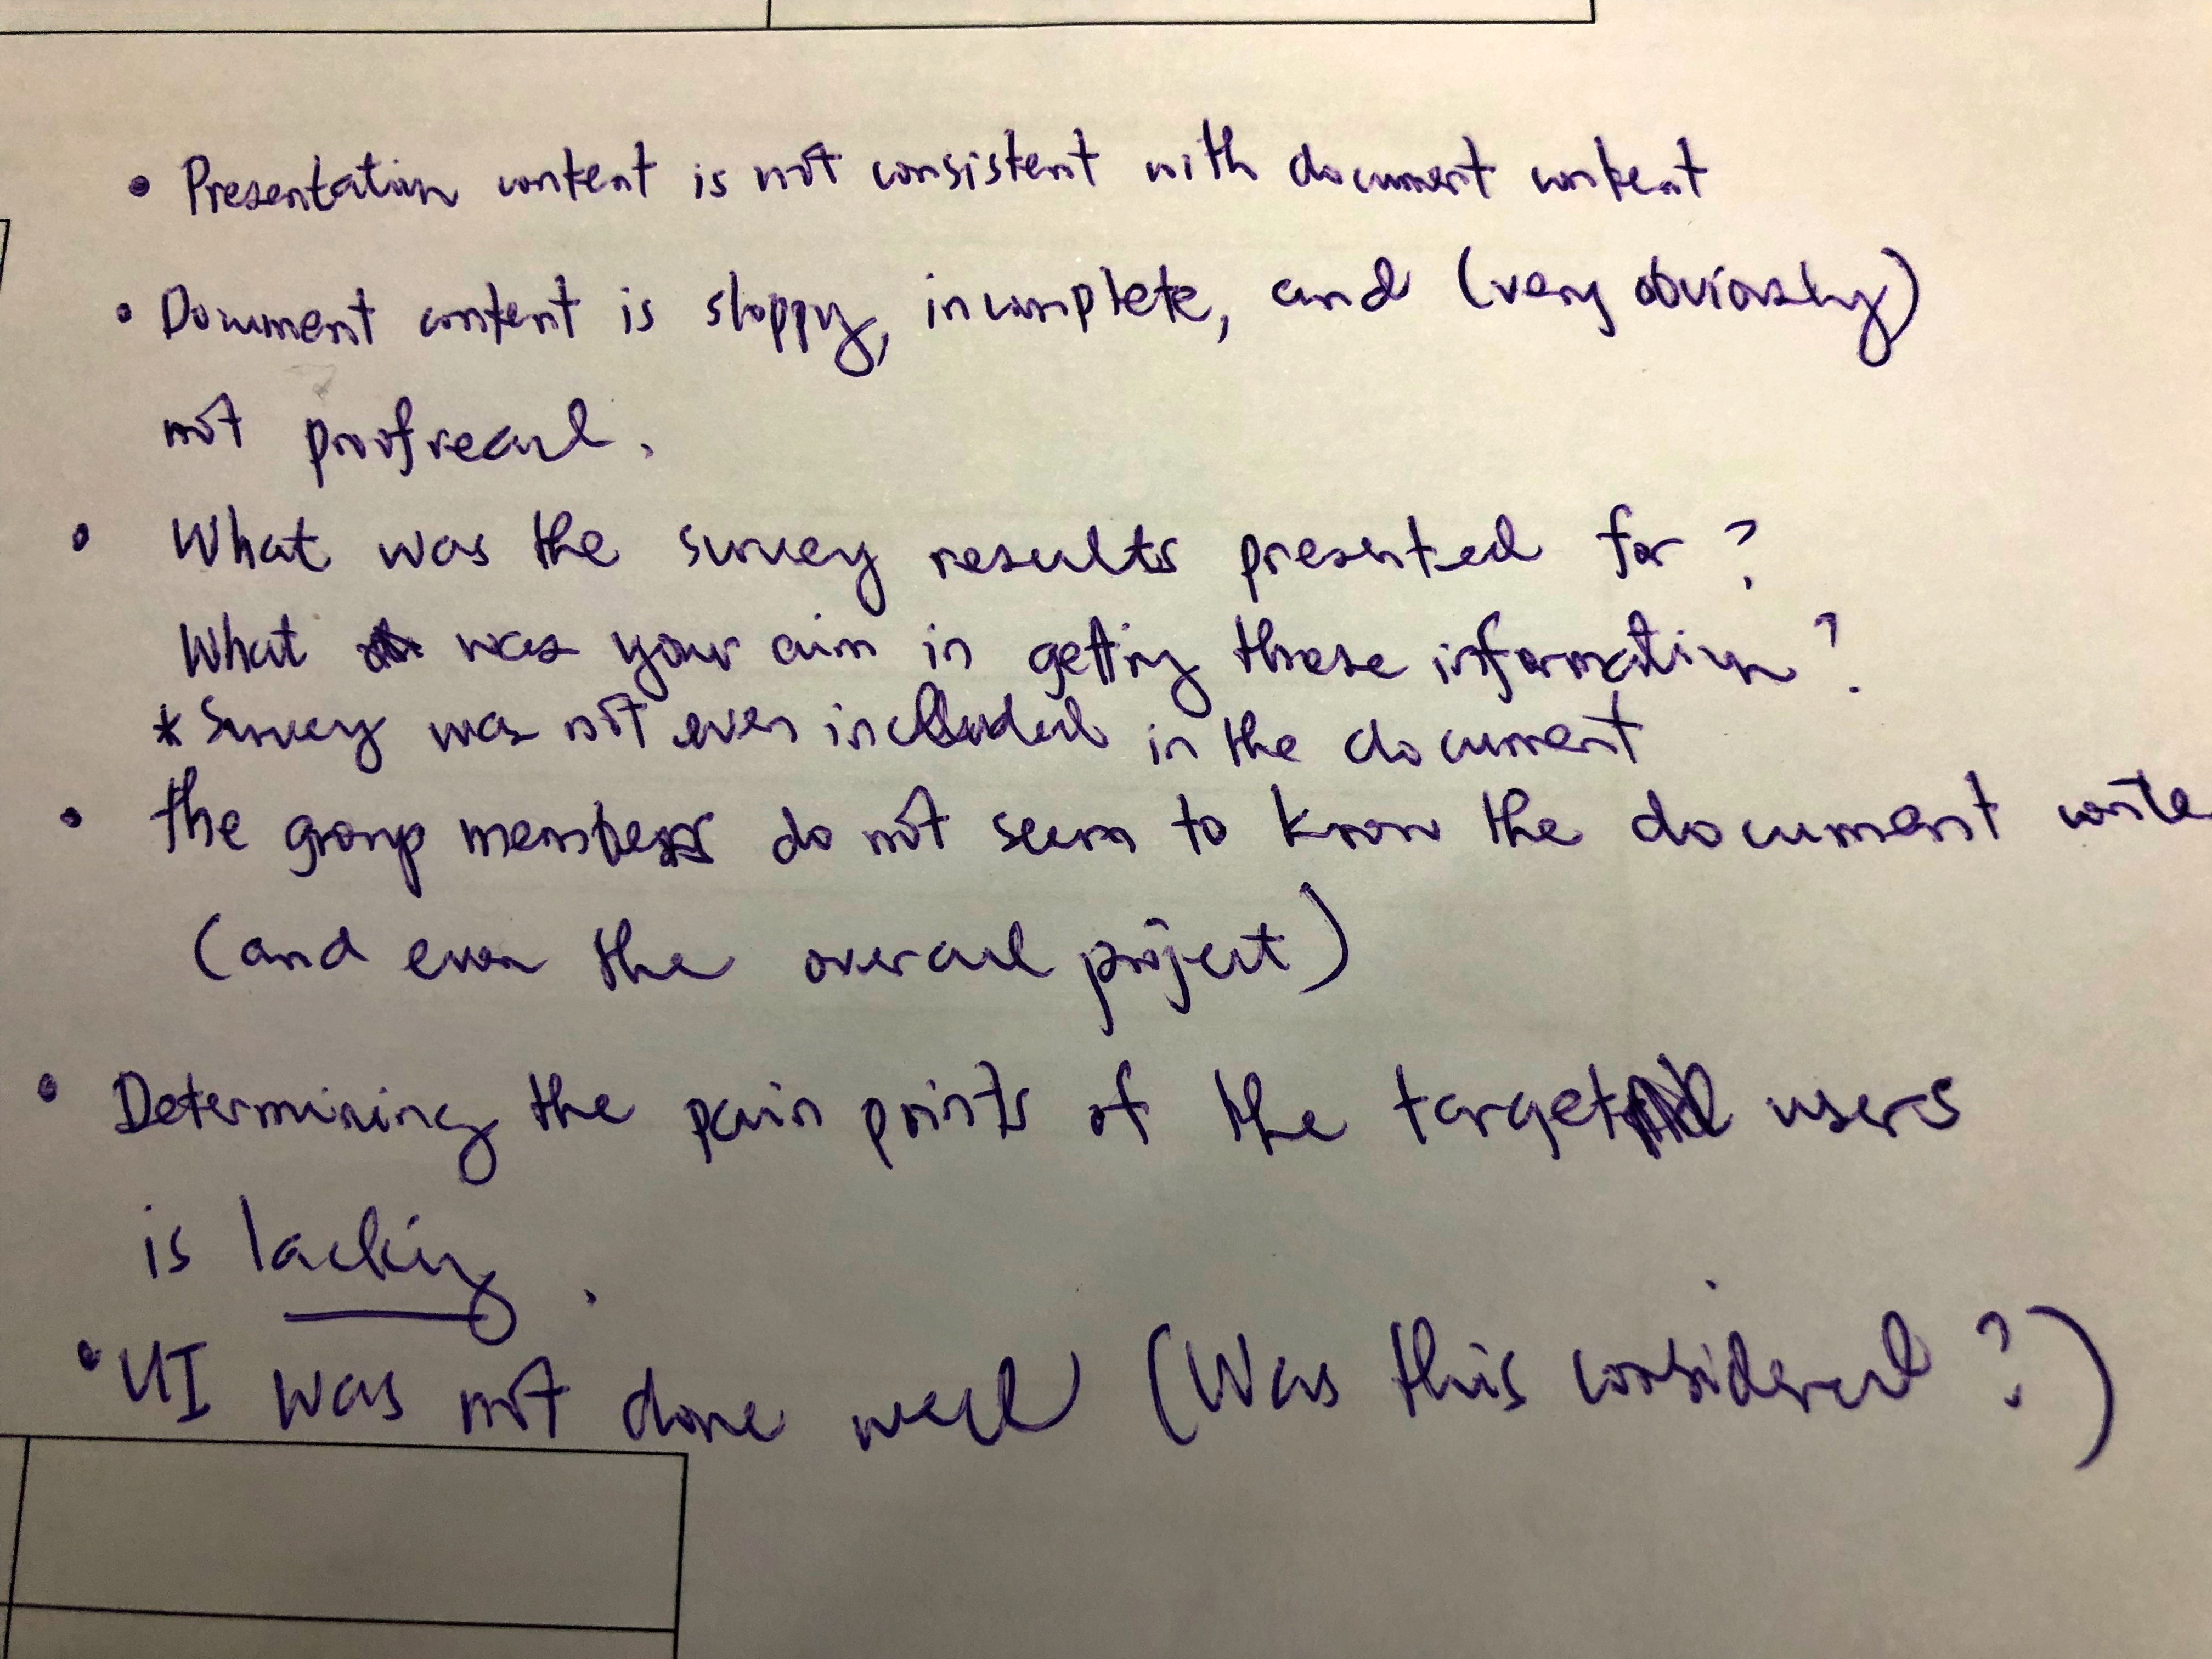 • Presentation content is not consistent with document content
• Document content is sloppy, incomplete, and (very obviously)
not proofread.
• What was the survey results presented for?
What was your aim in getting these information?
* Survey was not even included in the document
• the group members do not seem to know the document conte
(and even the overall project)
• Determining the pain points of the target users
is lacking.
• UI was not done well (Was this considered?)